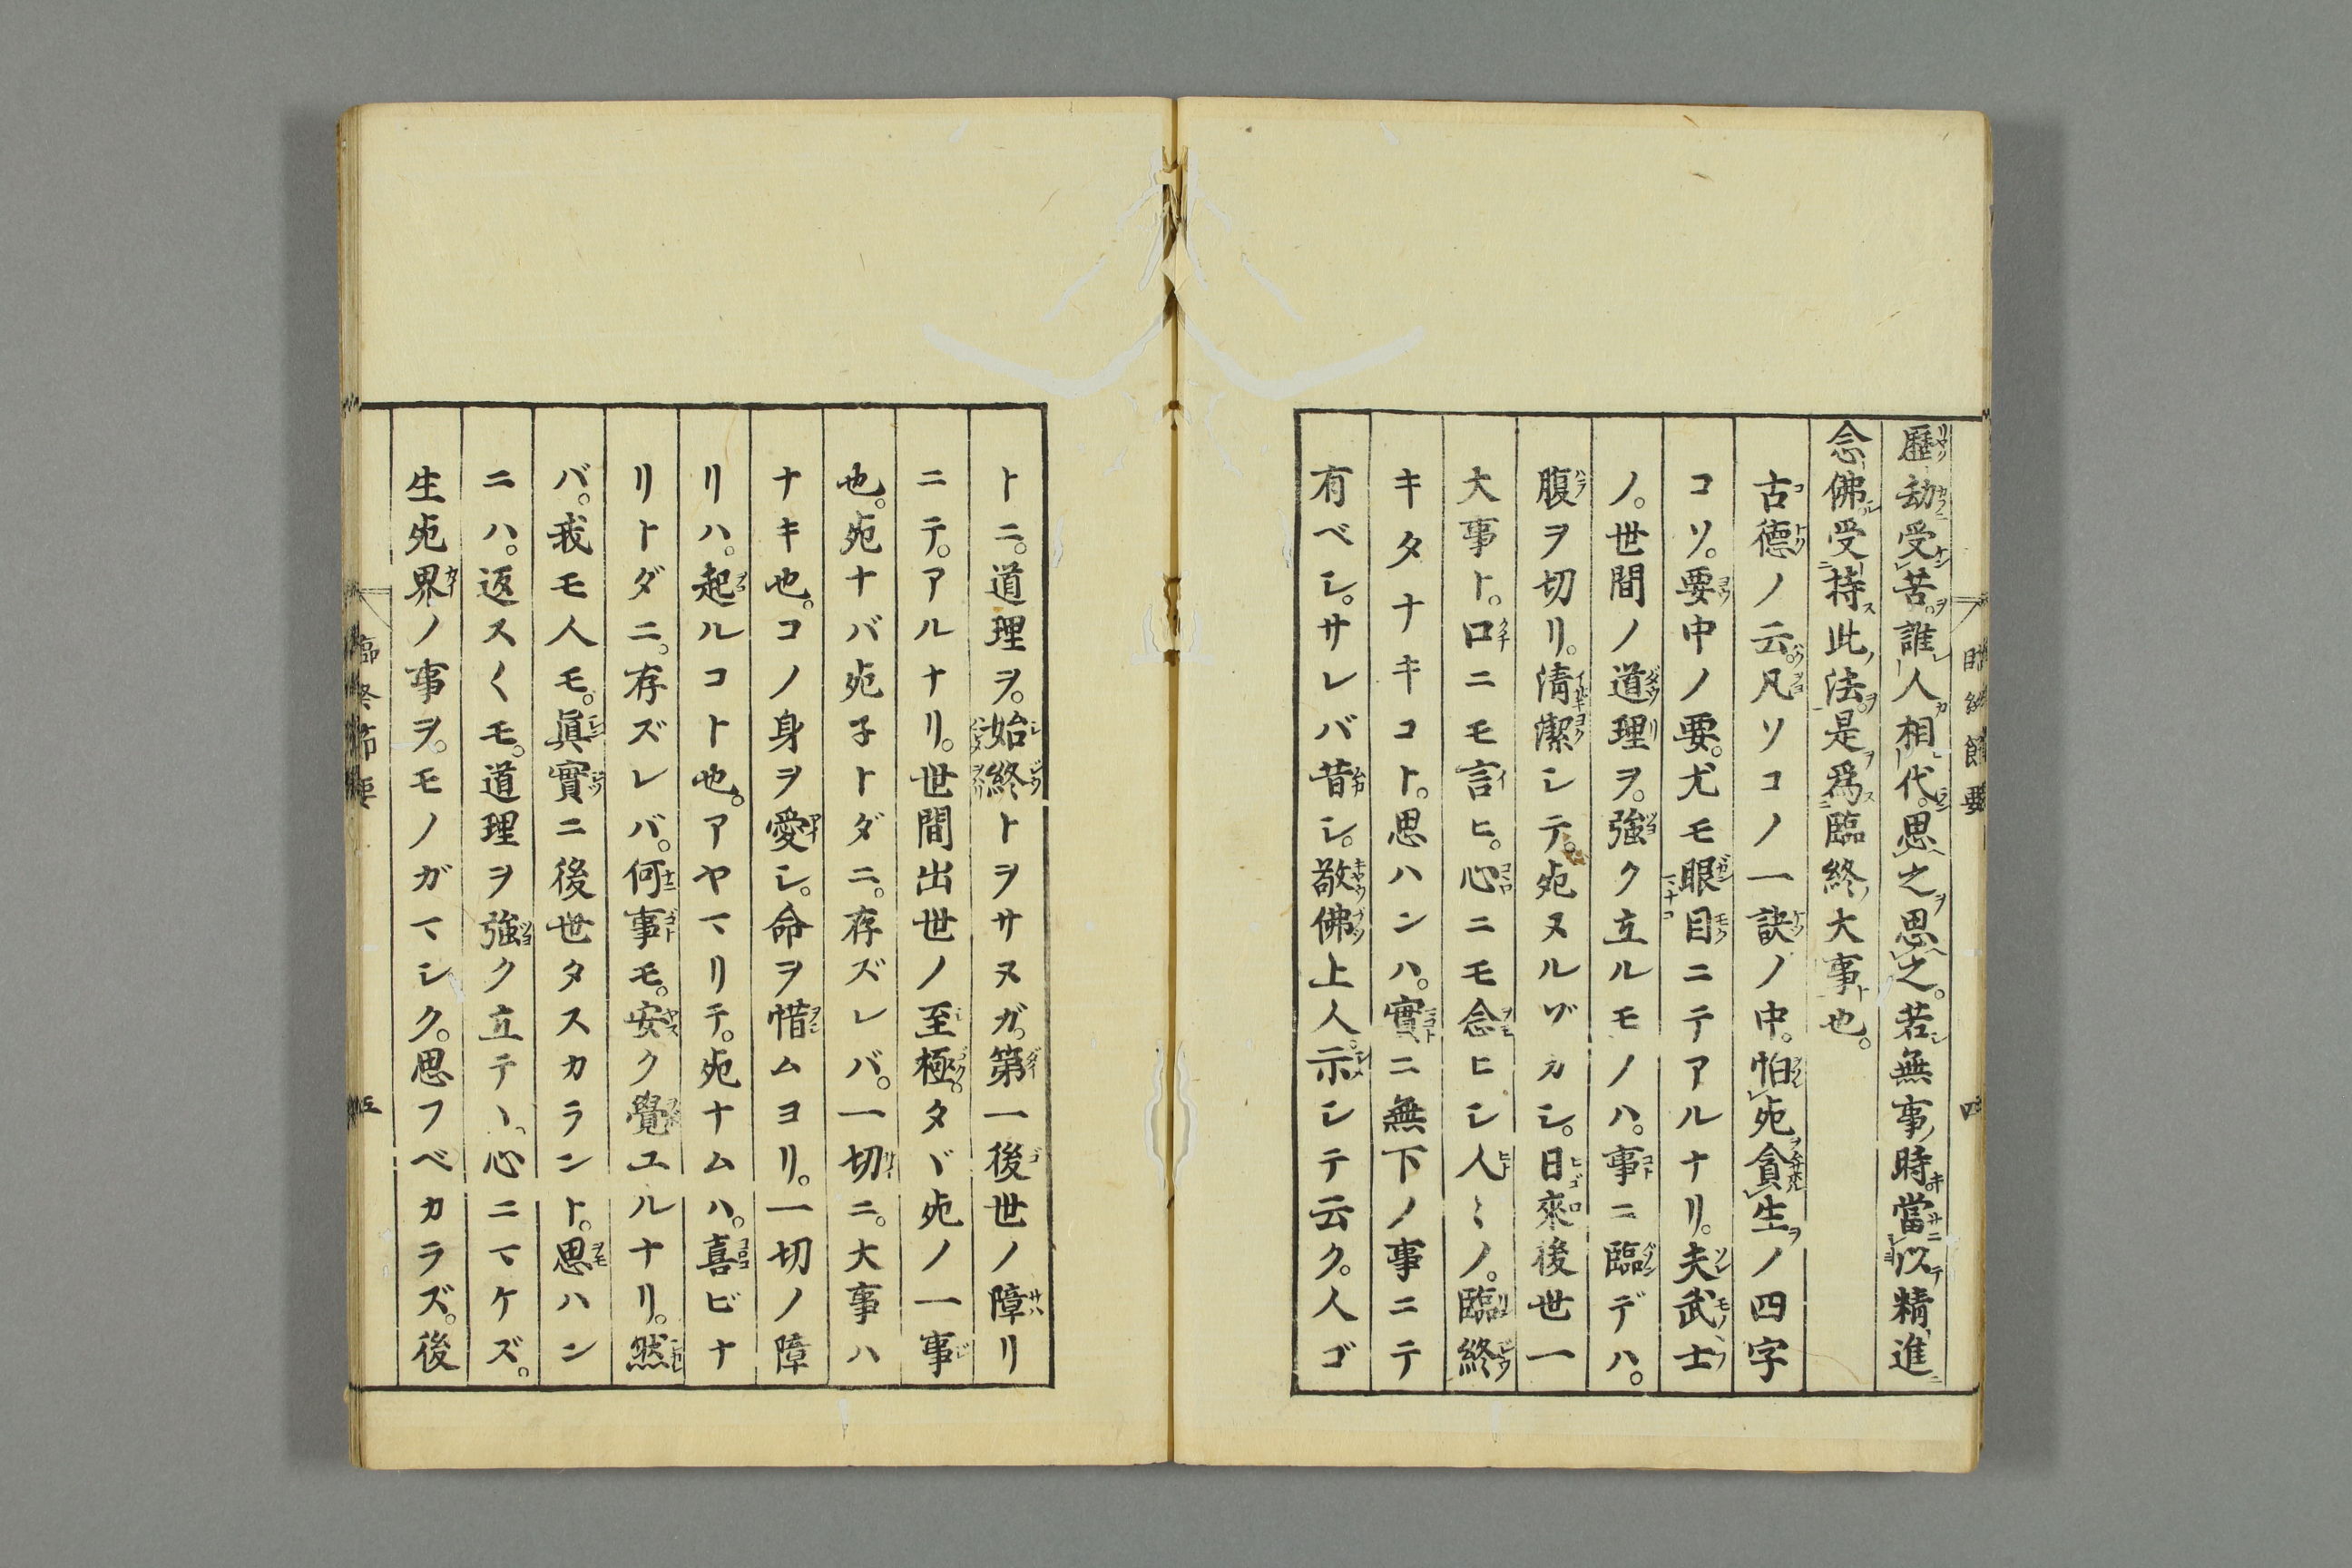 歷劫受苦。誰人相代。思之思之。若無事時當以精進
念佛受持此法。是爲臨終大事也。
古德ノ云。凡ソコノ一訣ノ中。怕死貪生ノ四字
コソ。要中ノ要。尤モ眼目ニテアルナリ。夫武士
ノ。世間ノ道理ヲ。強ク立ルモノハ。事ニ臨デハ。
腹ヲ切リ。淸潔シテ。死ヌルゾカシ。日來後世一
大事ト。口ニモ言ヒ。心ニモ念ヒシ人〻ノ。臨終
キタナキコト。思ハンハ。實ニ無下ノ事ニテ
有ベシ。サレバ昔シ。敬佛上人。示シテ云ク。人ゴ
トニ。道理ヲ。始終トヲサヌガ。第一後世ノ障リ
ニテ。アルナリ。世間出世ノ至極。タヾ死ノ一事
也。死ナバ死子トダニ。存ズレバ。一切ニ。大事ハ
ナキ也。コノ身ヲ愛シ。命ヲ惜ムヨリ。一切ノ障
リハ。起ルコト也。アヤマリテ。死ナムハ。喜ビナ
リトダニ。存ズレバ。何事モ。安ク覺ユルナリ。然
バ。我モ人モ。眞實ニ後世タスカラント。思ハン
ニハ。返ス〱モ。道理ヲ強ク立テヽ。心ニマケズ。
生死界ノ事ヲ。モノガマシク。思フベカラズ。後
臨終節要
五